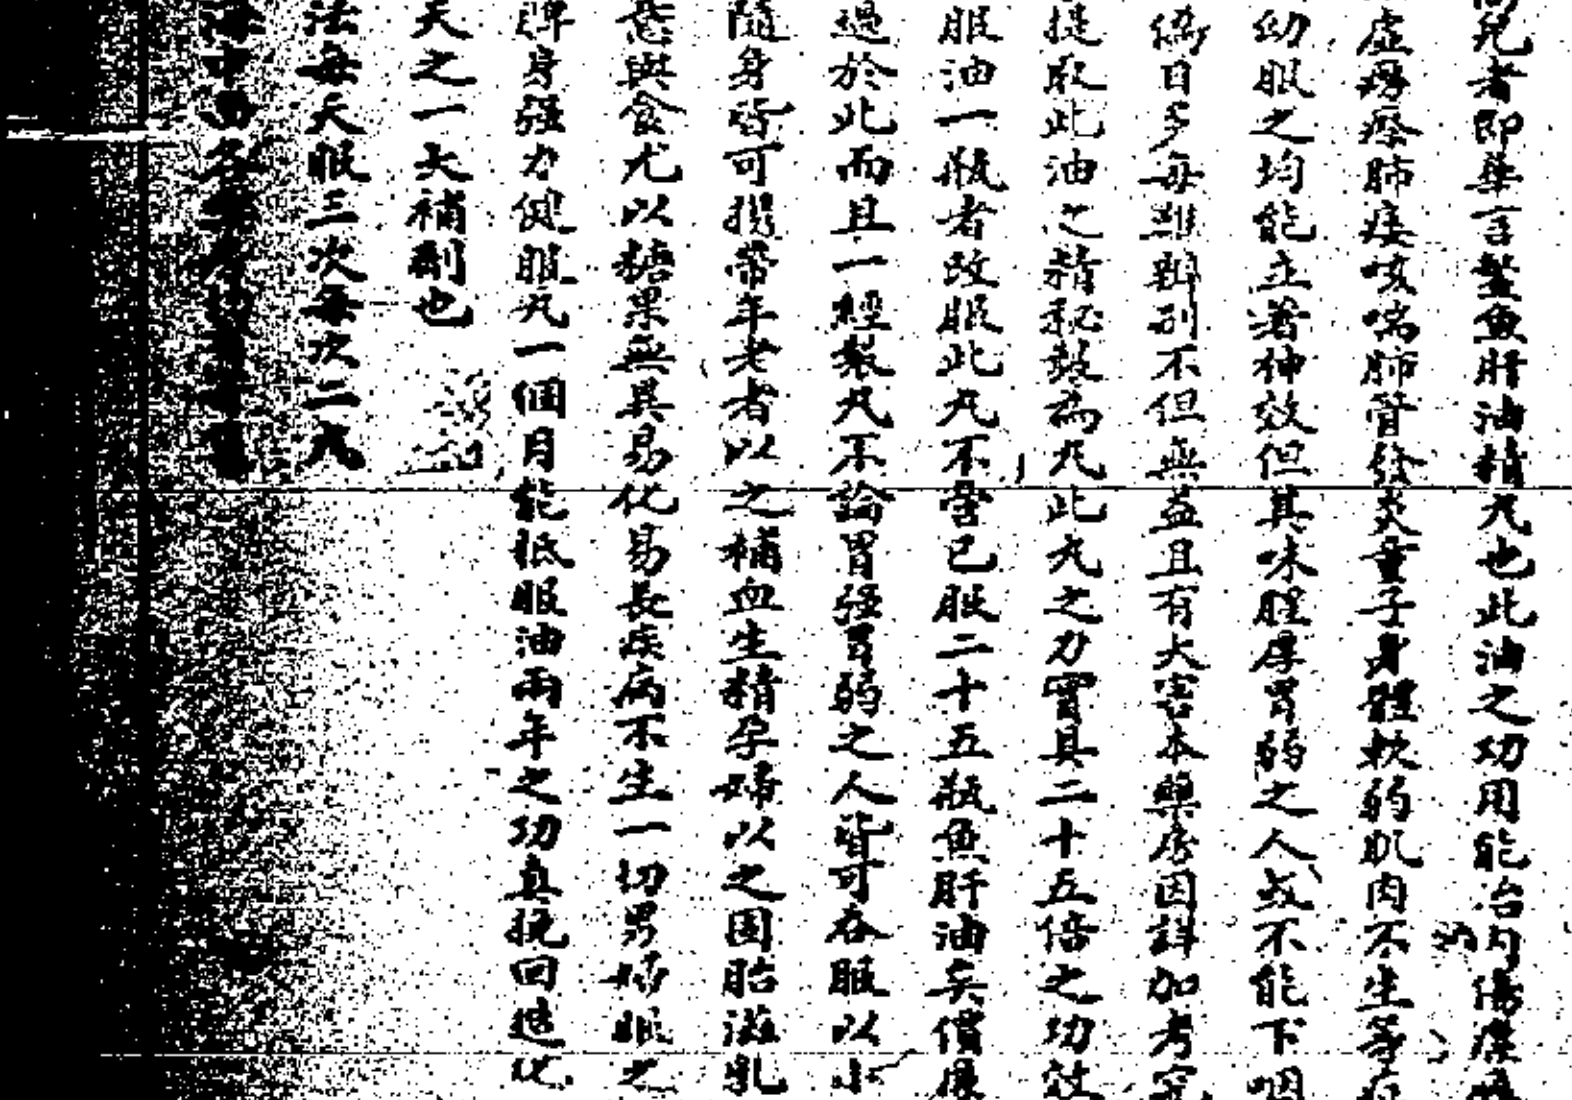 兒者即華言鰵魚肝油精丸也此油之功用能治內傷痰
虛癆瘵肺痿咳喘肺管發炎童子身體軟弱肌肉不生等症
幼服之均能立著神效但其味腥厚胃弱之人或不能下咽
偽日多每難辨別不但無益且有大害本藥房因詳加考究
提取此油之精秘製為丸此丸之力實具二十五倍之功效
服油一瓶者改服此丸不啻已服二十五瓶魚肝油矣價廉
過於此而且一經製丸不論胃強胃弱之人皆可吞服以小
隨身皆可攜帶年老者以之補血生精孕婦以之固胎滋乳
意與食尤以糖果無異易化易長疾病不生一切男婦服之
脾身強力健服丸一個月能抵服油兩年之功真挽回造化
天之一大補劑也
法每天服三次每次二丸